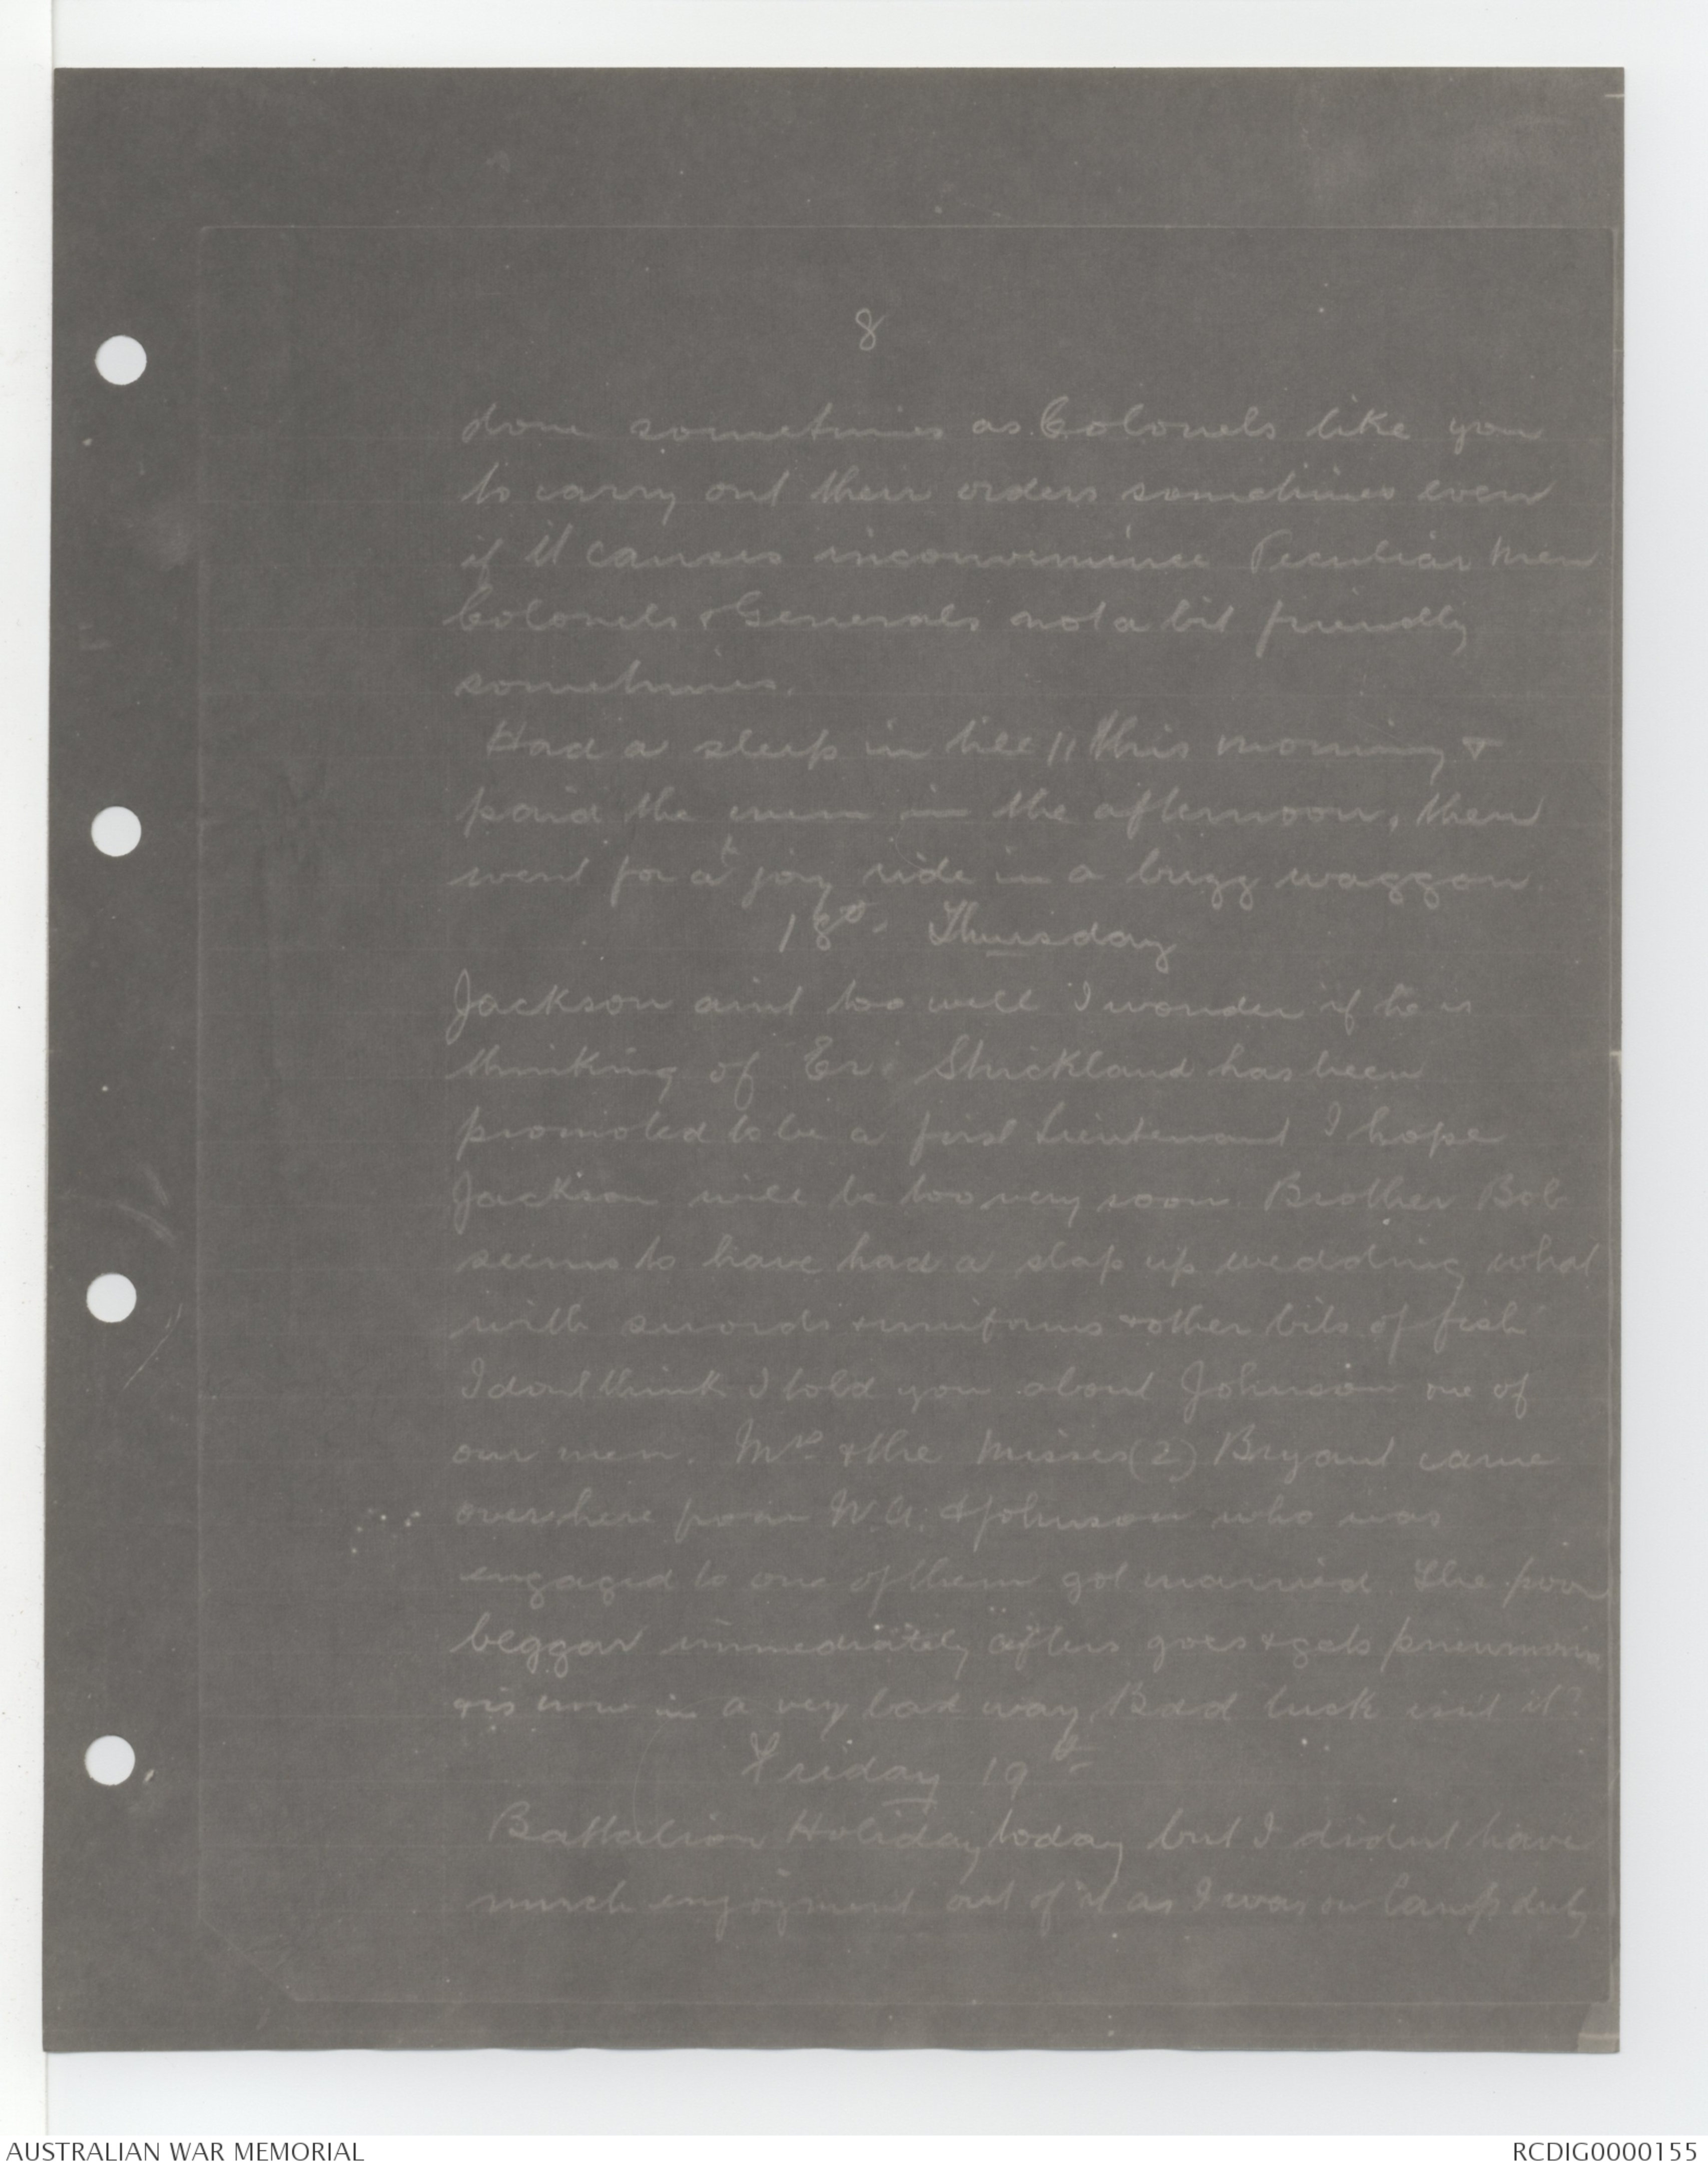 8
done sometimes as Colonels like you
to carry out their orders sometimes even
if it causes inconvenience Peculiar men
Colonels & Generals not a bit friendly
sometimes.
Had a sleep in till 11 this morning &
paid the men in the afternoon, then
went for a joy ride in a buzz waggon.
18th Thursday
Jackson aint too well I wonder if he is
thinking of Strickland has been
promoted to be a first Lieutenant I hope
Jackson will be too very soon. Brother Bob
seems to have had a slap up wedding what
with swords & uniforms & other bits of fish
I dont think I told you about Johnson one of
our men. Mrs & the Misses (2) Bryant came
over here from W.A. & Johnson who was
engaged to one of them got married. The poor
beggar immediately after goes & gets pneumonia
& is now in a very bad way, Bad luck isn't it?
Friday 19th
Battalion Holiday today but I didnt have
much enjoyment out of it as I was on Camp duty
AUSTRALIAN WAR MEMORIAL
RCDIG0000155